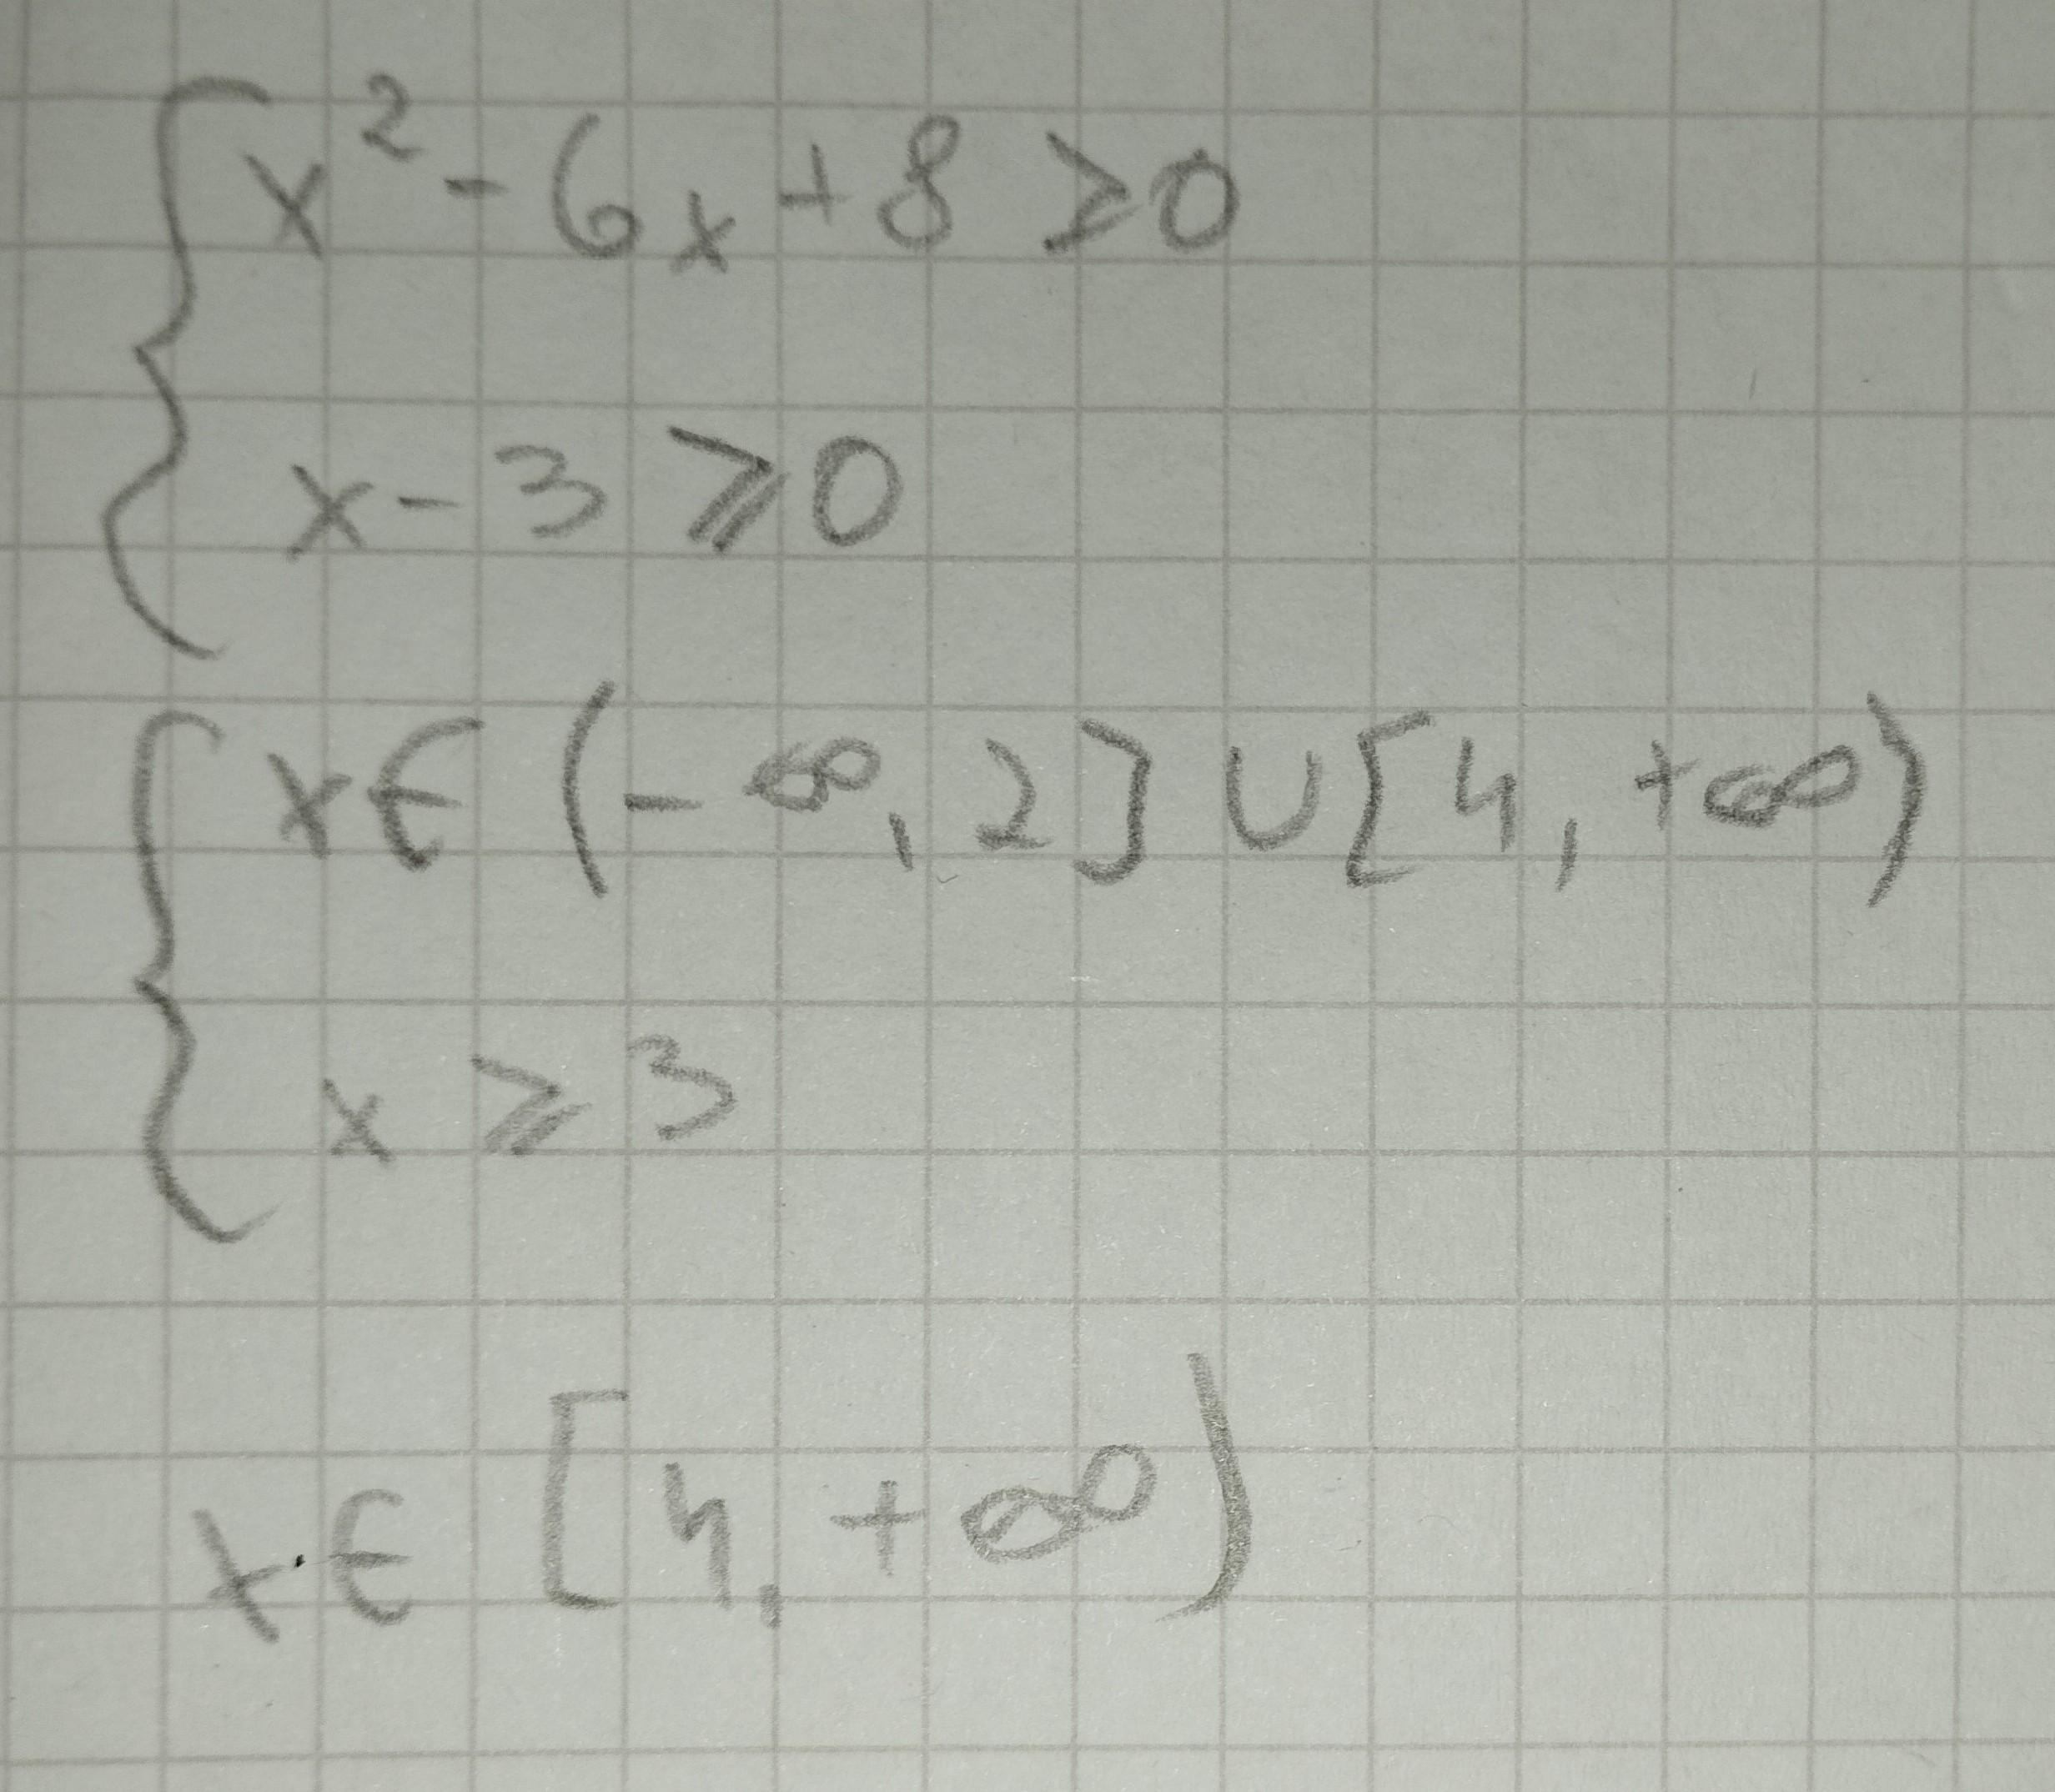 x² - 6x + 8 ≥ 0
x - 3 ⩾ 0
x ∈ (-∞, 2] ∪ [4, +∞)
x ⩾ 3
x ∈ [4, +∞)